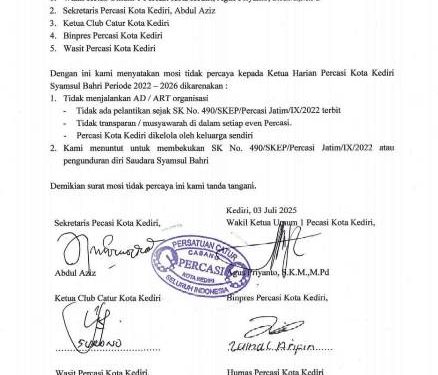 2. Sekretaris Percasi Kota Kediri, Abdul Aziz
3. Ketua Club Catur Kota Kediri
4. Binpres Percasi Kota Kediri
5. Wasit Percasi Kota Kediri
Dengan ini kami menyatakan mosi tidak percaya kepada Ketua Harian Percasi Kota Kediri
Syamsul Bahri Periode 2022 – 2026 dikarenakan :
1. Tidak menjalankan AD / ART organisasi
- Tidak ada pelantikan sejak SK No. 490/SKEP/Percasi Jatim/IX/2022 terbit
- Tidak transparan / musyawarah di dalam setiap even Percasi.
- Percasi Kota Kediri dikelola oleh keluarga sendiri
2. Kami menuntut untuk membekukan SK No. 490/SKEP/Percasi Jatim/IX/2022 atau
pengunduran diri Saudara Syamsul Bahri
Demikian surat mosi tidak percaya ini kami tanda tangani.
Kediri, 03 Juli 2025
Sekretaris Pecasi Kota Kediri, Wakil Ketua Umum 1 Pecasi Kota Kediri,
PERSATUAN CATUR
CABANG
PERCASI
KOTA KEDIRI
SELURUH INDONESIA
Abdul Aziz Agus Priyanto, S.K.M.,M.Pd
Ketua Club Catur Kota Kediri Binpres Percasi Kota Kediri,
SUKONO Zainal Aripin
Wasit Percasi Kota Kediri Humas Percasi Kota Kediri,